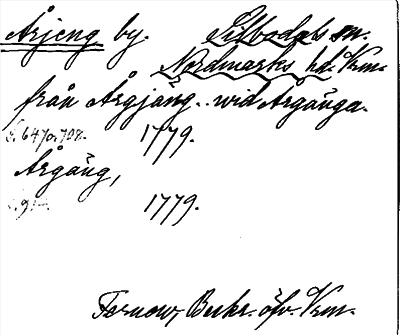 Årjeng by. Silbodals sn.
Nordmarks hd. Vrm.
från Årgjäng.. wid Årgånga.
S. 647 o. 708. 1779.
Årgäng,
1779.
Fernow, Beskr. öfv. Vrm.